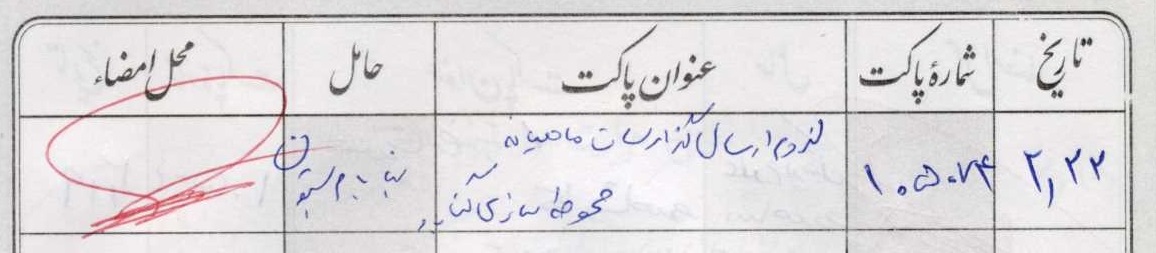 تاریخ شمارهٔ پاکت عنوان پاکت حامل محل امضاء
۲,۲۲ ۱۰۵۰۷۴ لزوم ارسال گزارسات ماهیانه
محوطه سازی